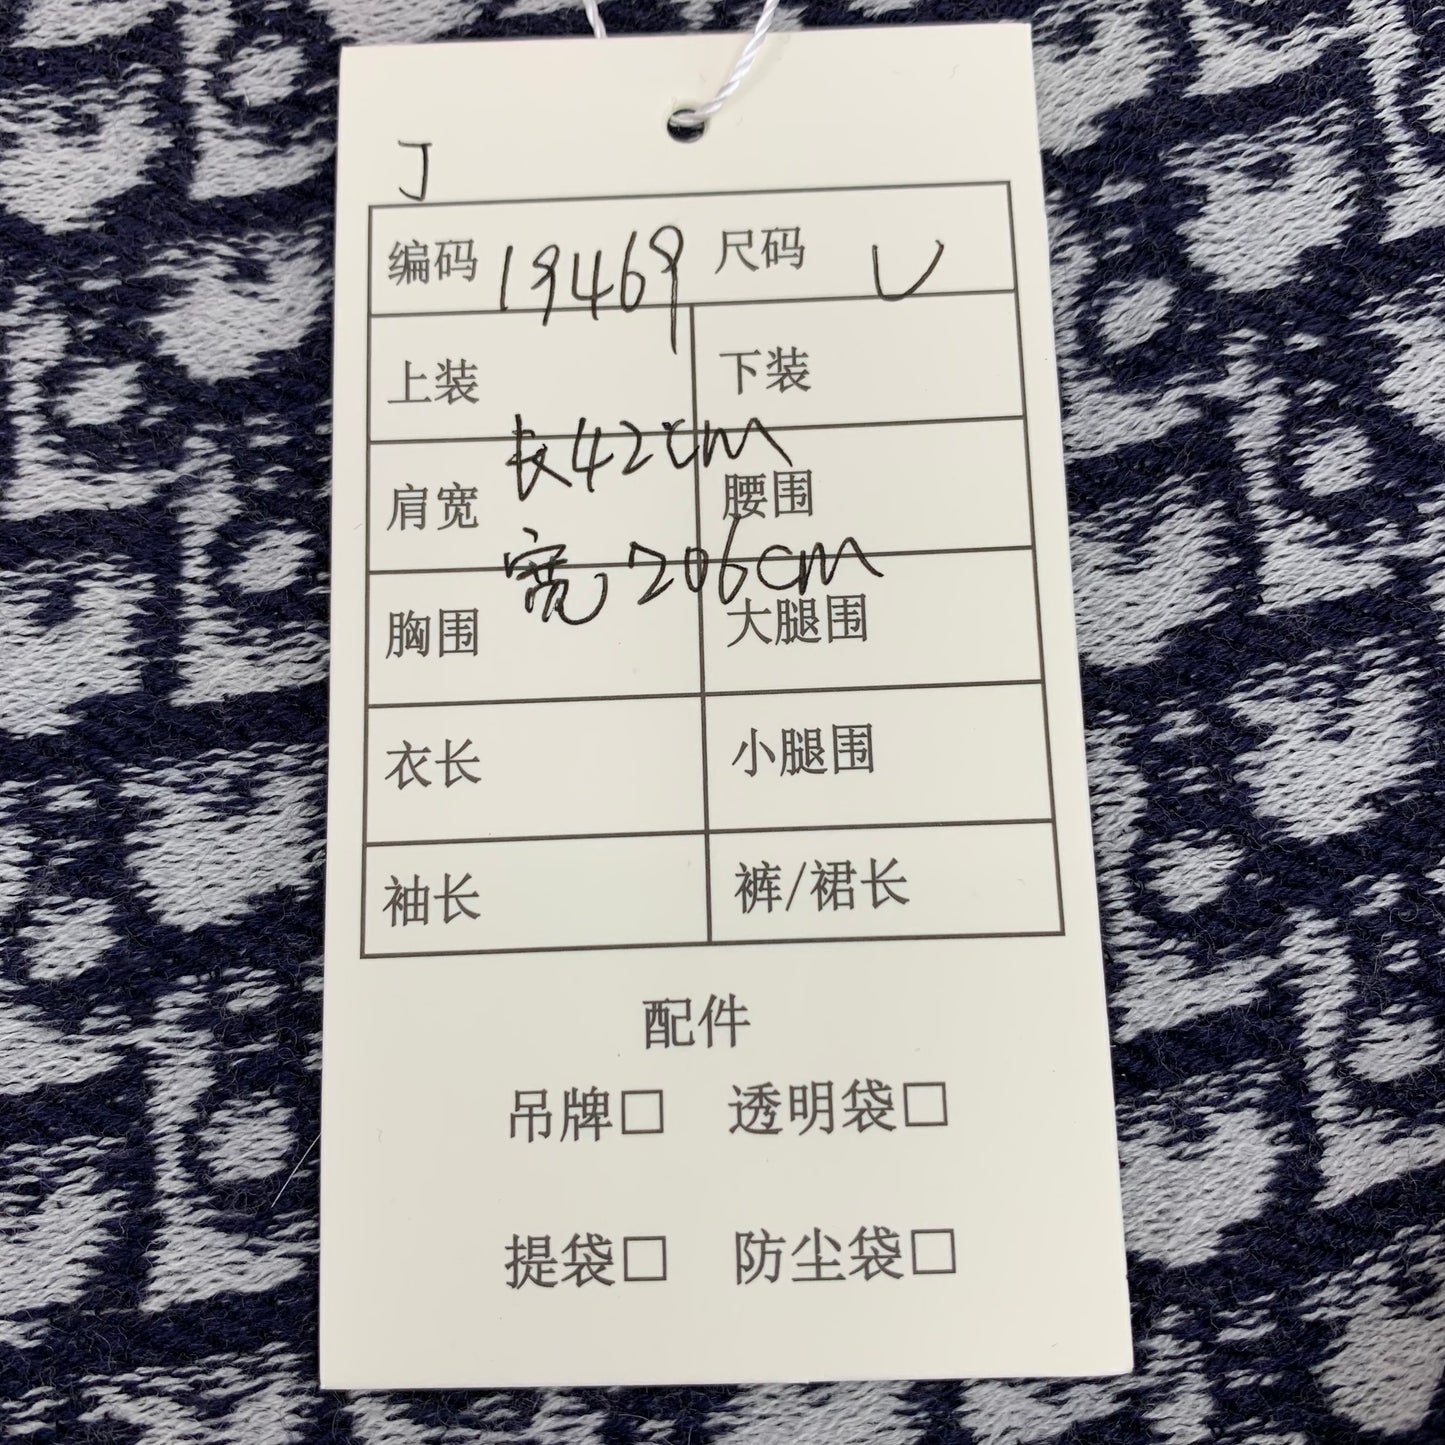 J
编码 19469 尺码 U
上装 下装
长42cm
肩宽 腰围
宽206cm
胸围 大腿围
衣长 小腿围
袖长 裤/裙长
配件
吊牌□ 透明袋□
提袋□ 防尘袋□